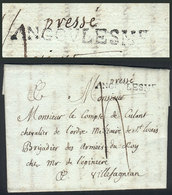 pressé
ANGOULESME
pressé
ANGOULESME
Monsieur
Monsieur le Compte de Culant
chevalier de l'ordre Militaire de St Louis
Brigadier des Armées du Roy
chez mr de l'epinière
Villefagnan